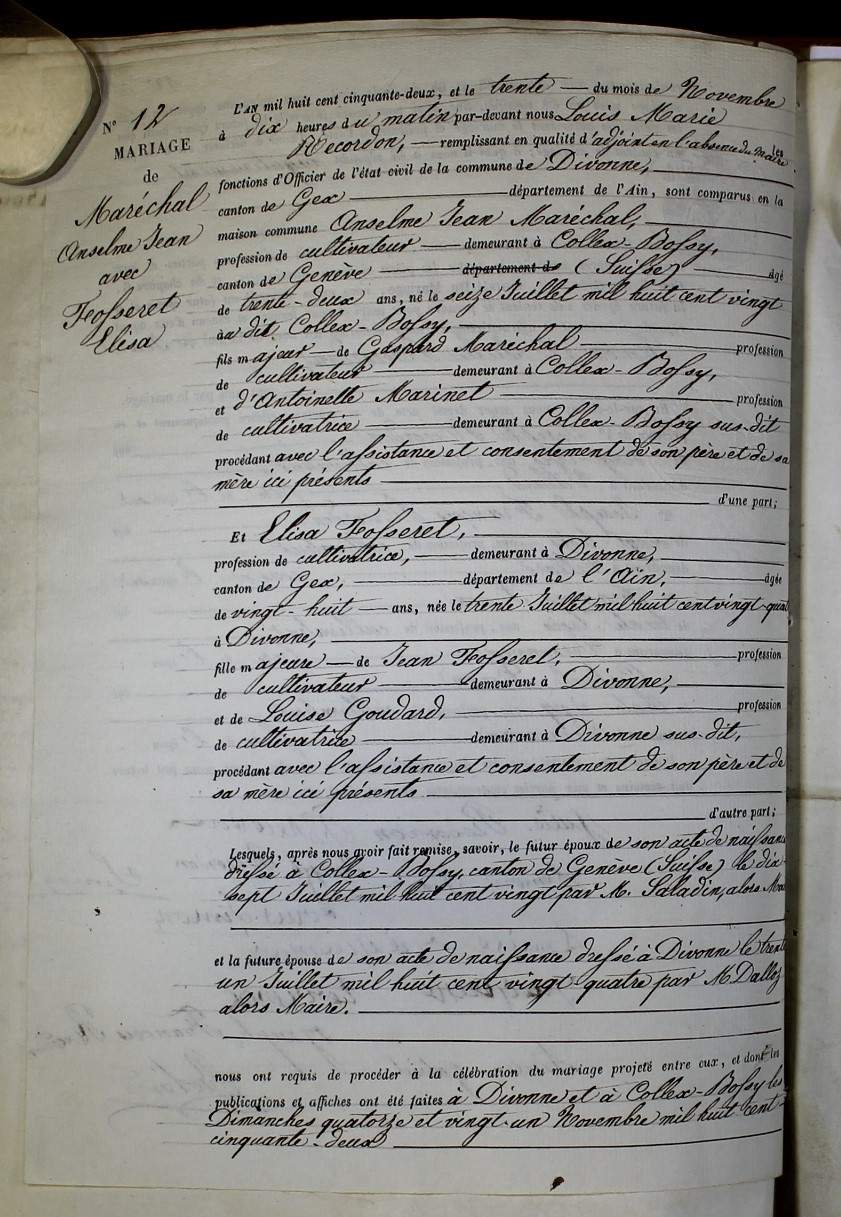 N° 12
MARIAGE
de
Maréchal
Anselme Jean
avec
Fosseret
Elisa
L'AN mil huit cent cinquante-deux, et le trente du mois de Novembre
à dix heures du matin par-devant nous Louis Marie
Recordon, remplissant en qualité d'adjoint en l'absence du maire les
fonctions d'Officier de l'état civil de la commune de Divonne,
canton de Gex département de l'Ain, sont comparus en la
maison commune Anselme Jean Maréchal,
profession de cultivateur demeurant à Collex-Bossy,
canton de Genève département de (Suisse) âgé
de trente-deux ans, né le seize Juillet mil huit cent vingt
au dit Collex-Bossy,
fils majeur de Gaspard Maréchal profession
de cultivateur demeurant à Collex-Bossy,
et d'Antoinette Marinet profession
de cultivatrice demeurant à Collex-Bossy sus-dit
procédant avec l'assistance et consentement de son père et de sa
mère ici présents
d'une part;
Et Elisa Fosseret,
profession de cultivatrice, demeurant à Divonne,
canton de Gex, département de l'Ain, âgée
de vingt-huit ans, née le trente Juillet mil huit cent vingt-quat
à Divonne,
fille majeure de Jean Fosseret, profession
de cultivateur demeurant à Divonne,
et de Louise Goudard, profession
de cultivatrice demeurant à Divonne sus-dit,
procédant avec l'assistance et consentement de son père et de
sa mère ici présents
d'autre part;
Lesquels, après nous avoir fait remise, savoir, le futur époux de son acte de naissance
dressé à Collex-Bossy, canton de Genève (Suisse) le dix-
sept Juillet mil huit cent vingt par M. Saladin, alors Maire
et la future épouse de son acte de naissance dressé à Divonne le trente
un Juillet mil huit cent vingt quatre par M. Dalloz
alors Maire.
nous ont requis de procéder à la célébration du mariage projeté entre eux, et dont les
publications et affiches ont été faites à Divonne et à Collex-Bossy les
Dimanches quatorze et vingt-un Novembre mil huit cent
cinquante-deux